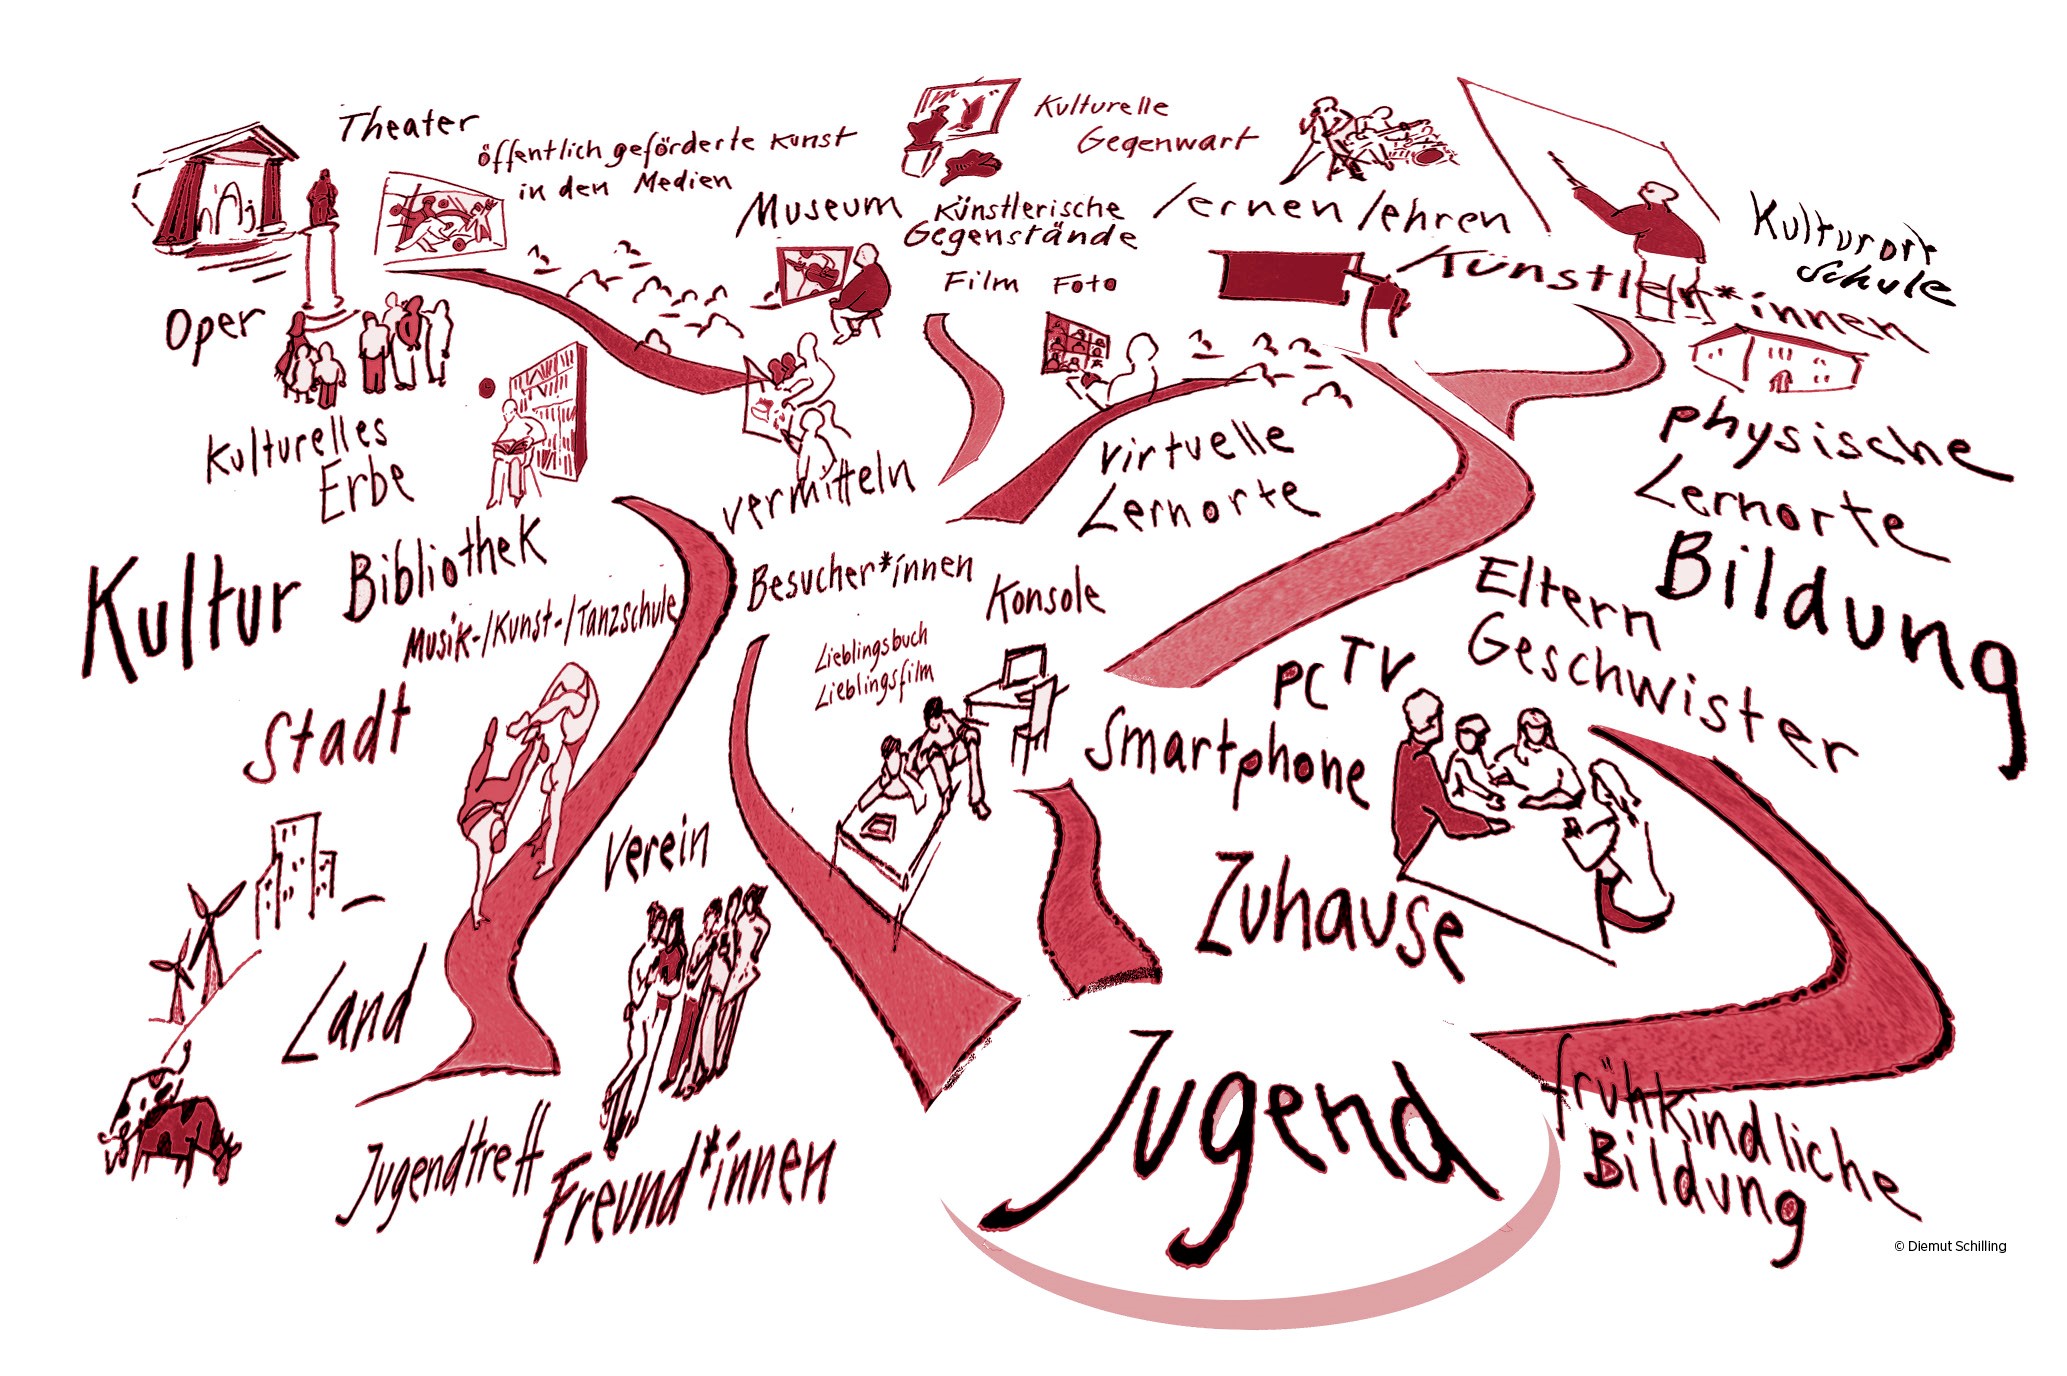 Theater
öffentlich geförderte Kunst
in den Medien
Kulturelle
Gegenwart
Museum
Künstlerische
Gegenstände
Film Foto
lernen lehren
Künstler*innen
Kulturort
Schule
Oper
Kulturelles
Erbe
vermitteln
virtuelle
Lernorte
physische
Lernorte
Kultur
Bibliothek
Musik-/Kunst-/Tanzschule
Besucher*innen
Konsole
Bildung
Eltern
Geschwister
Lieblingsbuch
Lieblingsfilm
PC TV
Smartphone
Stadt
Verein
Zuhause
Land
Jugendtreff
Freund*innen
Jugend
frühkindliche
Bildung
© Diemut Schilling